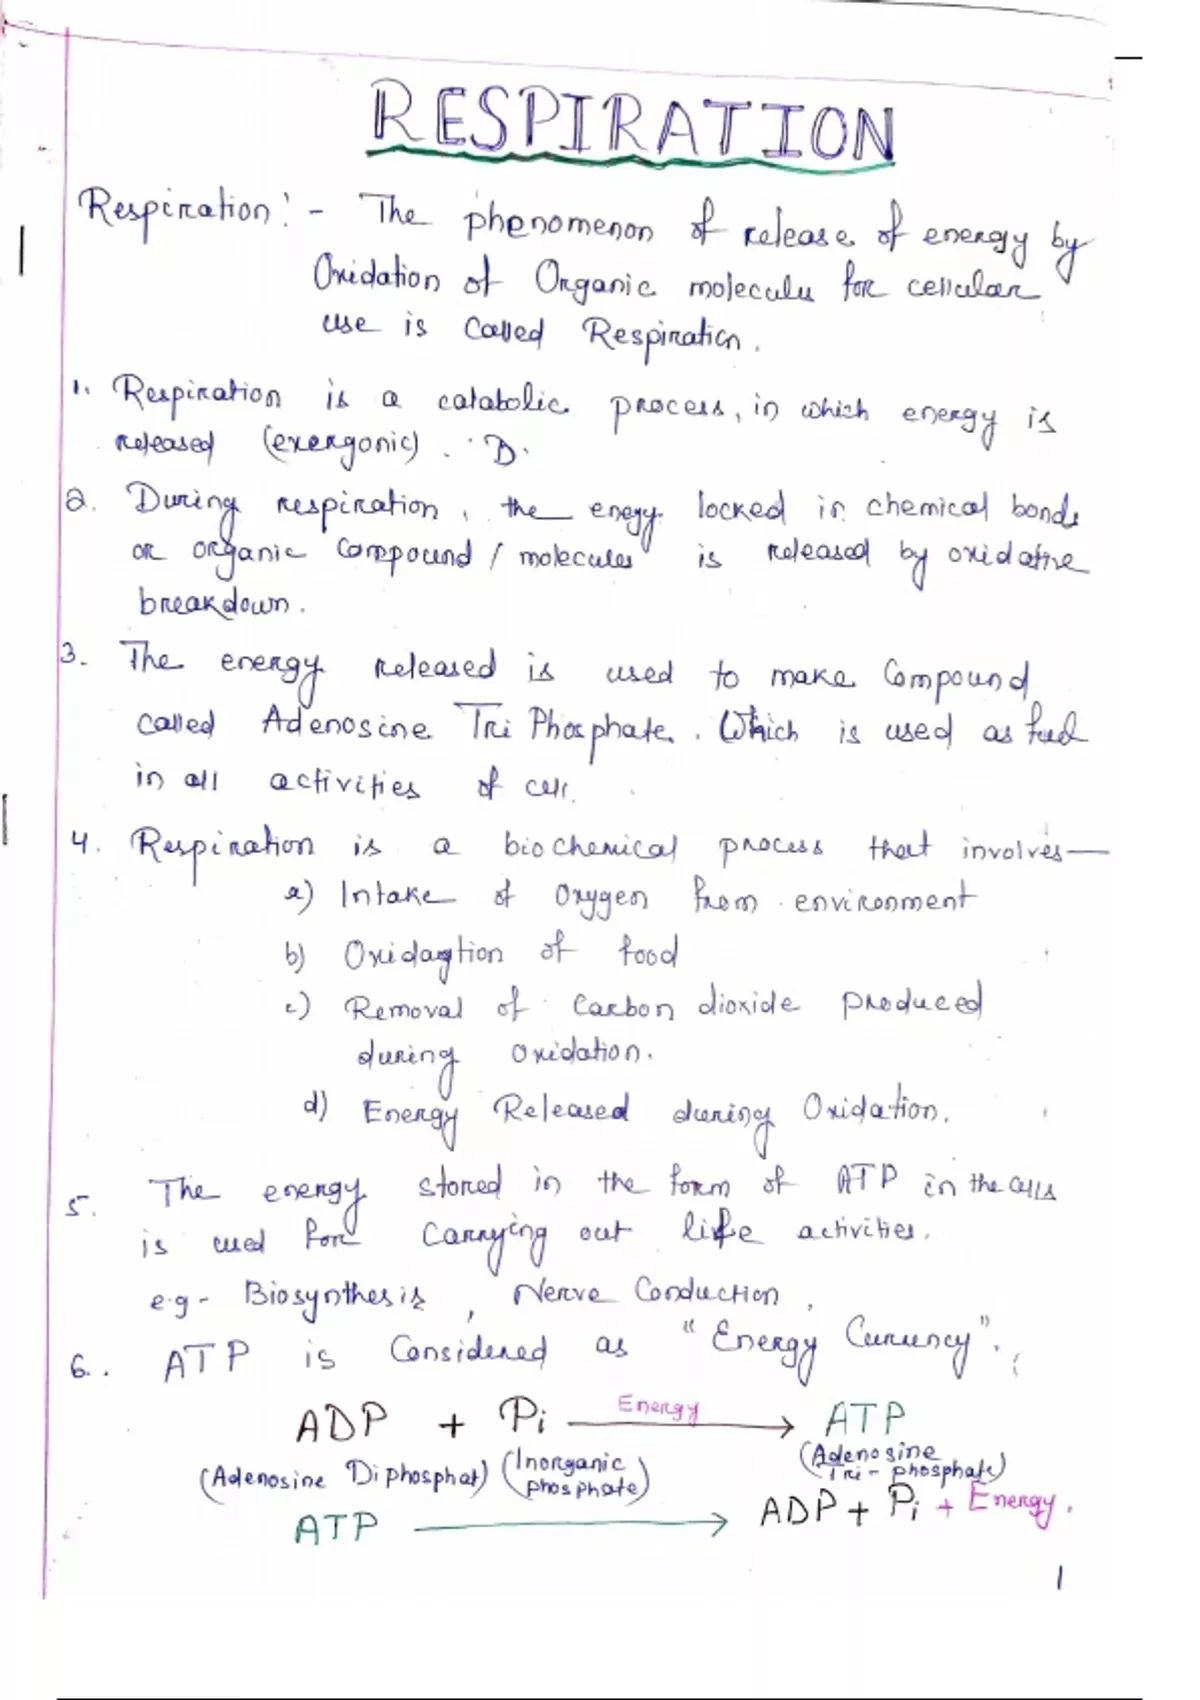 RESPIRATION
Respiration:- The phenomenon of release of energy by
Oxidation of Organic molecule for cellular
use is called Respiration.
1. Respiration is a catabolic process, in which energy is
released (exergonic). D.
2. During respiration, the enegy locked in chemical bonds
or organic compound / molecules is released by oxidative
breakdown.
3. The energy released is used to make Compound
called Adenosine Tri Phosphate. Which is used as fuel
in all activities of cell.
4. Respiration is a biochemical process that involves—
a) Intake of oxygen from environment
b) Oxidagtion of food
c) Removal of Carbon dioxide produced
during oxidation.
d) Energy Released during Oxidation.
5. The energy stored in the form of ATP in the cells
is used for carrying out life activities.
e.g - Biosynthesis, Nerve Conduction,
6. ATP is Considered as "Energy Currency".
ADP + Pi Energy → ATP
(Adenosine Diphosphat) (Inorganic phosphate) (Adenosine Tri - phosphate)
ATP → ADP + Pi + Energy.
1